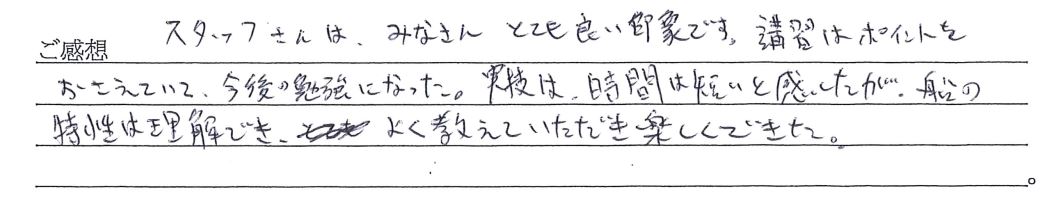 ご感想 スタッフさんは、みなさん とても良い印象です。講習はポイントを
おさえていて、今後の勉強になった。実技は、時間は短いと感じたが、船の
特性は理解でき、よく教えていただき楽しくできた。
。